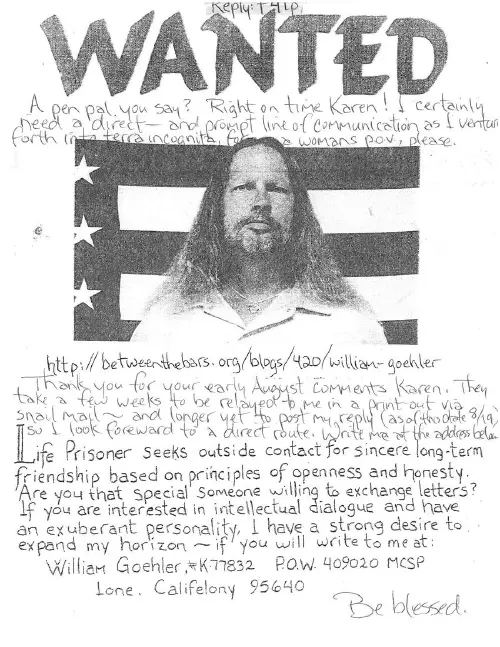 Reply: T41P
WANTED
A pen pal you say? Right on time Karen! I certainly
need a direct — and prompt line of communication as I venture
forth into terra incognita, a womans p.o.v, please.
http://betweenthebars.org/blogs/420/william-goehler
Thank you for your early August comments Karen. They
take a few weeks to be relayed to me in a print out via
snail mail ~ and longer yet to post my reply (as of this date 8/19,
so I look foreward to a direct route. Write me at the address below
Life Prisoner seeks outside contact for sincere long-term
friendship based on principles of openness and honesty.
Are you that special someone willing to exchange letters?
If you are interested in intellectual dialogue and have
an exuberant personality, I have a strong desire to
expand my horizon ~ if you will write to me at:
William Goehler, #K77832 P.O.W. 409020 MCSP
Ione. Califelony 95640
Be blessed.